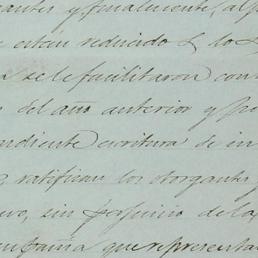 antes y finalmente, al p
e están reducido & lo &
a se le facilitaron con
s del año anterior y po
ndiente escritura de in
ratifican los otorgantes
vo, sin perjuicio de la
ompañía que representa